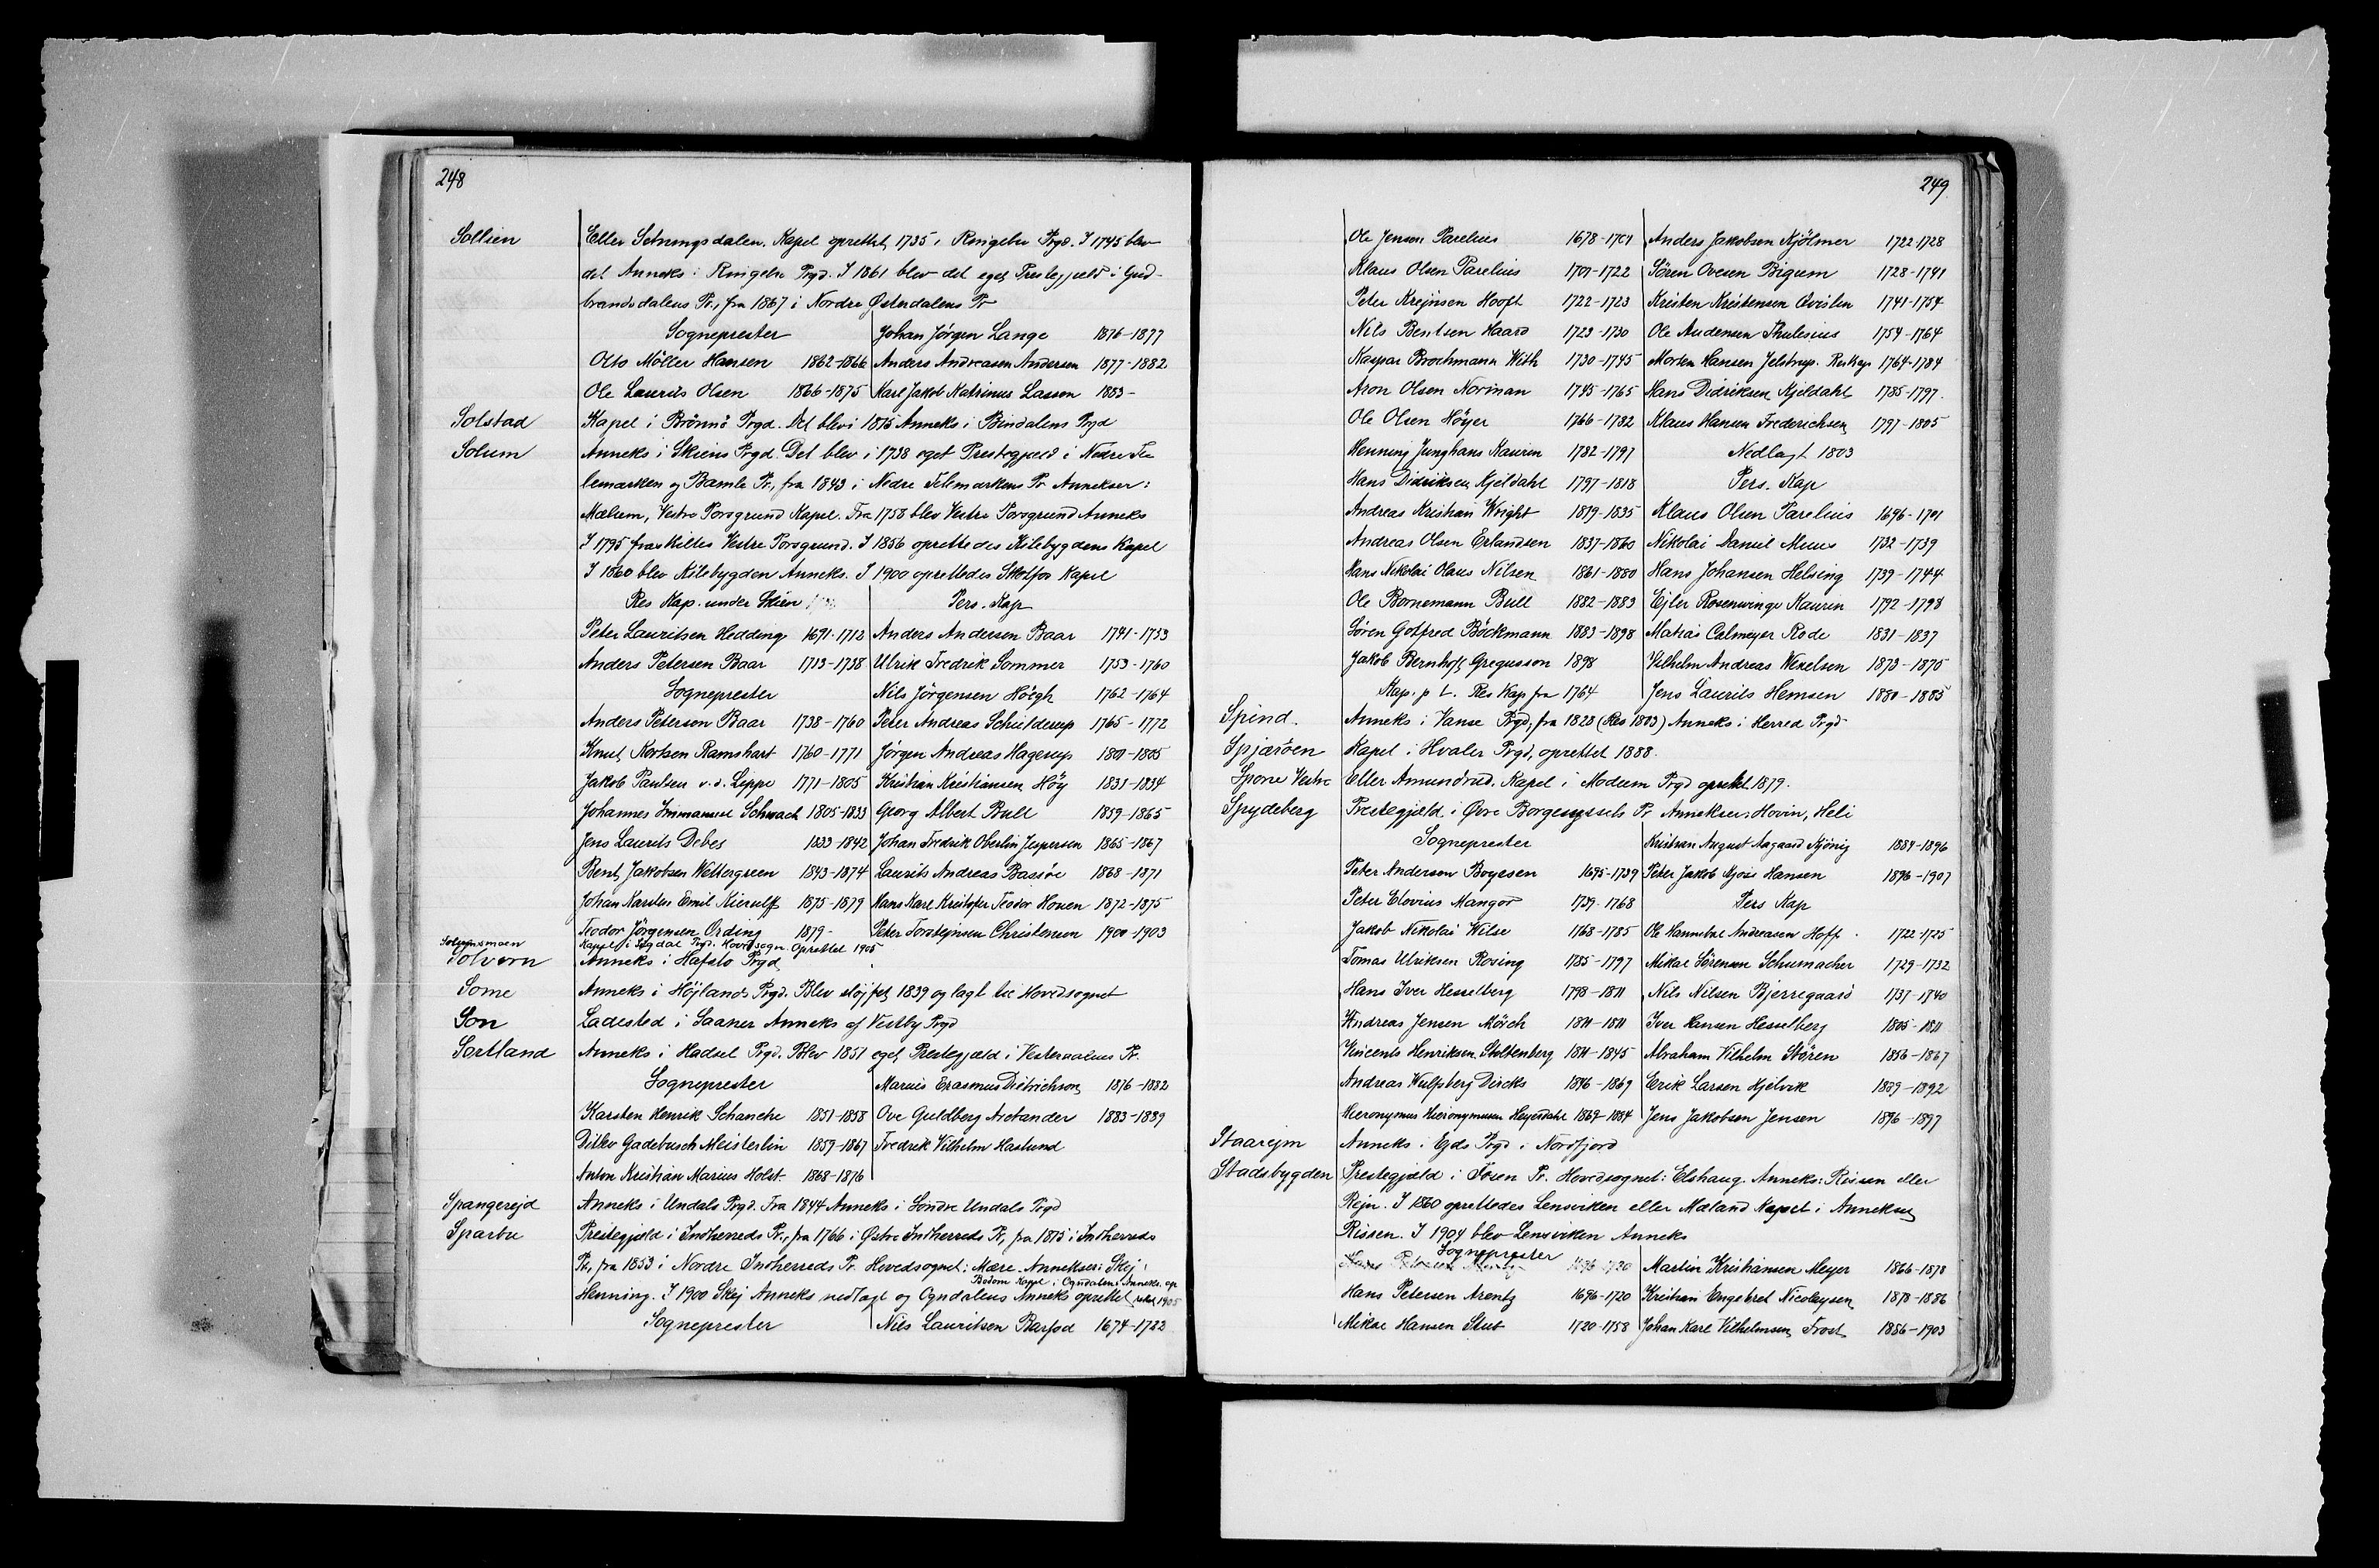 248
Sollien Eller Setningsdalen. Kapel oprettet 1735 i Ringebu Prgd. I 1745 blev
det Anneks i Ringebu Prgd. I 1861 blev det eget Prestegjæld i Gud-
brandsdalens Pr., fra 1867 i Nordre Østerdalens Pr
Sogneprester Johan Jörgen Lange 1876-1877
Otto Möller Hansen 1862-1866 Anders Andreasen Andersen 1877-1882
Ole Laurits Olsen 1866-1875 Karl Jakob Katrinus Lassen 1883-
Solstad Kapel i Brönnö Prgd. Det blev i 1875 Anneks i Bindalens Prgd
Solum Anneks i Skiens Prgd. Det blev i 1738 eget Prestegjæld i Nedre Te
lemarken og Bamle Pr., fra 1843 i Nedre Telemarkens Pr Annekser:
Mælum, Vestre Porsgrund Kapel. Fra 1758 blev Vestre Porsgrund Anneks
I 1795 fraskiltes Vestre Porsgrund. I 1856 oprettedes Kilebygdens Kapel
I 1860 blev Kilebygden Anneks. I 1900 oprettedes Skotfos Kapel
Res Kap. under Skien Pers. Kap
Peter Lauritsen Hedding 1691-1712 Anders Andersen Baar 1741-1753
Anders Petersen Baar 1713-1738 Ulrik Fredrik Sommer 1753-1760
Sogneprester Nils Jörgensen Höegh 1762-1764
Anders Petersen Baar 1738-1760 Peter Andreas Schilderup 1765-1772
Knut Kortsen Ramshart 1760-1771 Jörgen Andreas Hagerup 1801-1805
Jakob Paulsen v.d. Lippe 1771-1805 Kristian Kristiansen Höy 1831-1834
Johannes Immanuel Schwach 1805-1833 Georg Albert Bull 1859-1865
Jens Laurits Debes 1833-1842 Johan Fredrik Oberlin Jespersen 1865-1867
Bent Jakobsen Wettergreen 1843-1874 Laurits Andreas Bassöe 1868-1871
Johan Karsten Emil Kierulff 1875-1879 Hans Karl Kristofer Teodor Houen 1872-1875
Teodor Jörgensen Ording 1879- Peter Torstejnsen Christensen 1900-1903
Kapel i Sigdal Prgd. Hovedsogn. Oprettet 1905
Solvorn Anneks i Hafslo Prgd
Some Anneks i Höjlands Prgd. Blev slöjfet 1839 og lagt til Hovedsognet
Son Ladested i Saaner Anneks af Vestby Prgd
Sortland Anneks i Hadsel Prgd. Blev 1851 eget Prestegjæld i Vesteraalens Pr.
Sogneprester Marius Erasmus Dietrichson 1876-1882
Karsten Henrik Schanche 1851-1858 Ove Guldberg Arctander 1883-1889
Ditlev Gadebusch Meisterlin 1859-1867 Fredrik Vilhelm Haslund
Anton Kristian Marius Holst 1868-1876
Spangerejd Anneks i Undals Prgd. Fra 1844 Anneks i Söndre Undals Prgd
Sparbu Prestegjæld i Indherreds Pr., fra 1766 i Østre Indherreds Pr, fra 1815 i Indherreds
Pr., fra 1853 i Nordre Indherreds Pr. Hovedsognet: Mære. Annekser: Skej,
Bodom Kapel i Ogndalens Anneks. op
Henning. I 1900 Skej Anneks nedlagt og Ogndalens Anneks oprettet rettet 1905
Sogneprester Nils Lauritsen Barfod 1674-1722
249
Ole Jensen Parelius 1678-1701 Anders Jakobsen Kjölmer 1722-1728
Klaus Olsen Parelius 1701-1722 Sören Ovesen Bigum 1728-1741
Peter Krejnsen Hooft 1722-1723 Kristen Kristensen Qvislin 1741-1754
Nils Bentsen Haard 1723-1730 Ole Andersen Thulesius 1754-1764
Kaspar Brochmann With 1730-1745 Morten Hansen Jelstrup. Reskap 1764-1784
Aron Olsen Norman 1745-1765 Hans Didriksen Kjeldahl 1785-1797.
Ole Olsen Höyer 1766-1782 Klaus Hansen Frederichsen 1797-1805
Henning Junghans Kaurin 1782-1797 Nedlagt 1803
Hans Didriksen Kjeldahl 1797-1818 Pers. Kap
Andreas Kristian Wright 1819-1835 Klaus Olsen Parelius 1696-1701
Andreas Olsen Erlandsen 1837-1860 Nikolai Daniel Muus 1732-1739
Hans Nikolai Olaus Nilsen 1861-1880 Hans Johansen Helsing 1739-1744
Ole Bornemann Bull 1882-1883 Ejler Rosenvinge Kaurin 1792-1798
Sören Gotfred Böckmann 1883-1898 Matias Calmeyer Rode 1831-1837
Jakob Bernhoft Gregusson 1898 Vilhelm Andreas Wexelsen 1873-1875
Kap. p t. Res Kap fra 1764 Jens Laurits Hemsen 1880-1885
Spind. Anneks i Vanse Prgd, fra 1823 (Res 1803) Anneks i Herred Prgd
Spjæröen Kapel i Hvaler Prgd, oprettet 1888.
Spone Vestre Eller Amundrud. Kapel i Modum Prgd oprettet 1879.
Spydeberg Prestegjæld i Øvre Borgesyssels Pr Annekser: Hovin, Heli
Sogneprester Kristian August Aagaard Kjönig 1884-1896
Peter Andersen Boyesen 1695-1739 Peter Jakob Njos Hansen 1896-1907
Peter Clovius Mangor 1739-1768 Pers Kap
Jakob Nikolai Wilse 1768-1785 Ole Hannibal Andreasen Hoff 1722-1725
Tomas Ulriksen Rosing 1785-1797 Mikal Sörensen Schumacher 1729-1732
Hans Iver Hesselberg 1798-1811 Nils Nilsen Bjerregaard 1737-1740
Andreas Jensen Mörch 1811-1811 Iver Hansen Hesselberg 1805-1811
Vincents Henriksen Stoltenberg 1811-1845 Abraham Vilhelm Stören 1856-1867
Andreas Wulfsberg Dircks 1846-1869 Erik Larsen Hjelvik 1889-1892
Hieronymus Hieronymusen Heyerdahl 1869-1884 Jens Jakobsen Jensen 1896-1897
Staarejm Anneks i Ejds Prgd i Nordfjord
Stadsbygden Prestegjæld i Fosen Pr. Hovedsognet: Elshaug. Anneks: Rissen eller
Rejn. I 1860 oprettedes Lensviken eller Mæland Kapel i Annekset
Rissen. I 1904 blev Lensviken Anneks
Sogneprester Martin Kristiansen Meyer 1866-1878
Hans Petersen Arentz 1696-1720 Kristian Engebret Nicolaysen 1878-1886
Mikal Hansen Stub 1720-1758 Johan Karl Vilhelmsen Frost 1886-1903